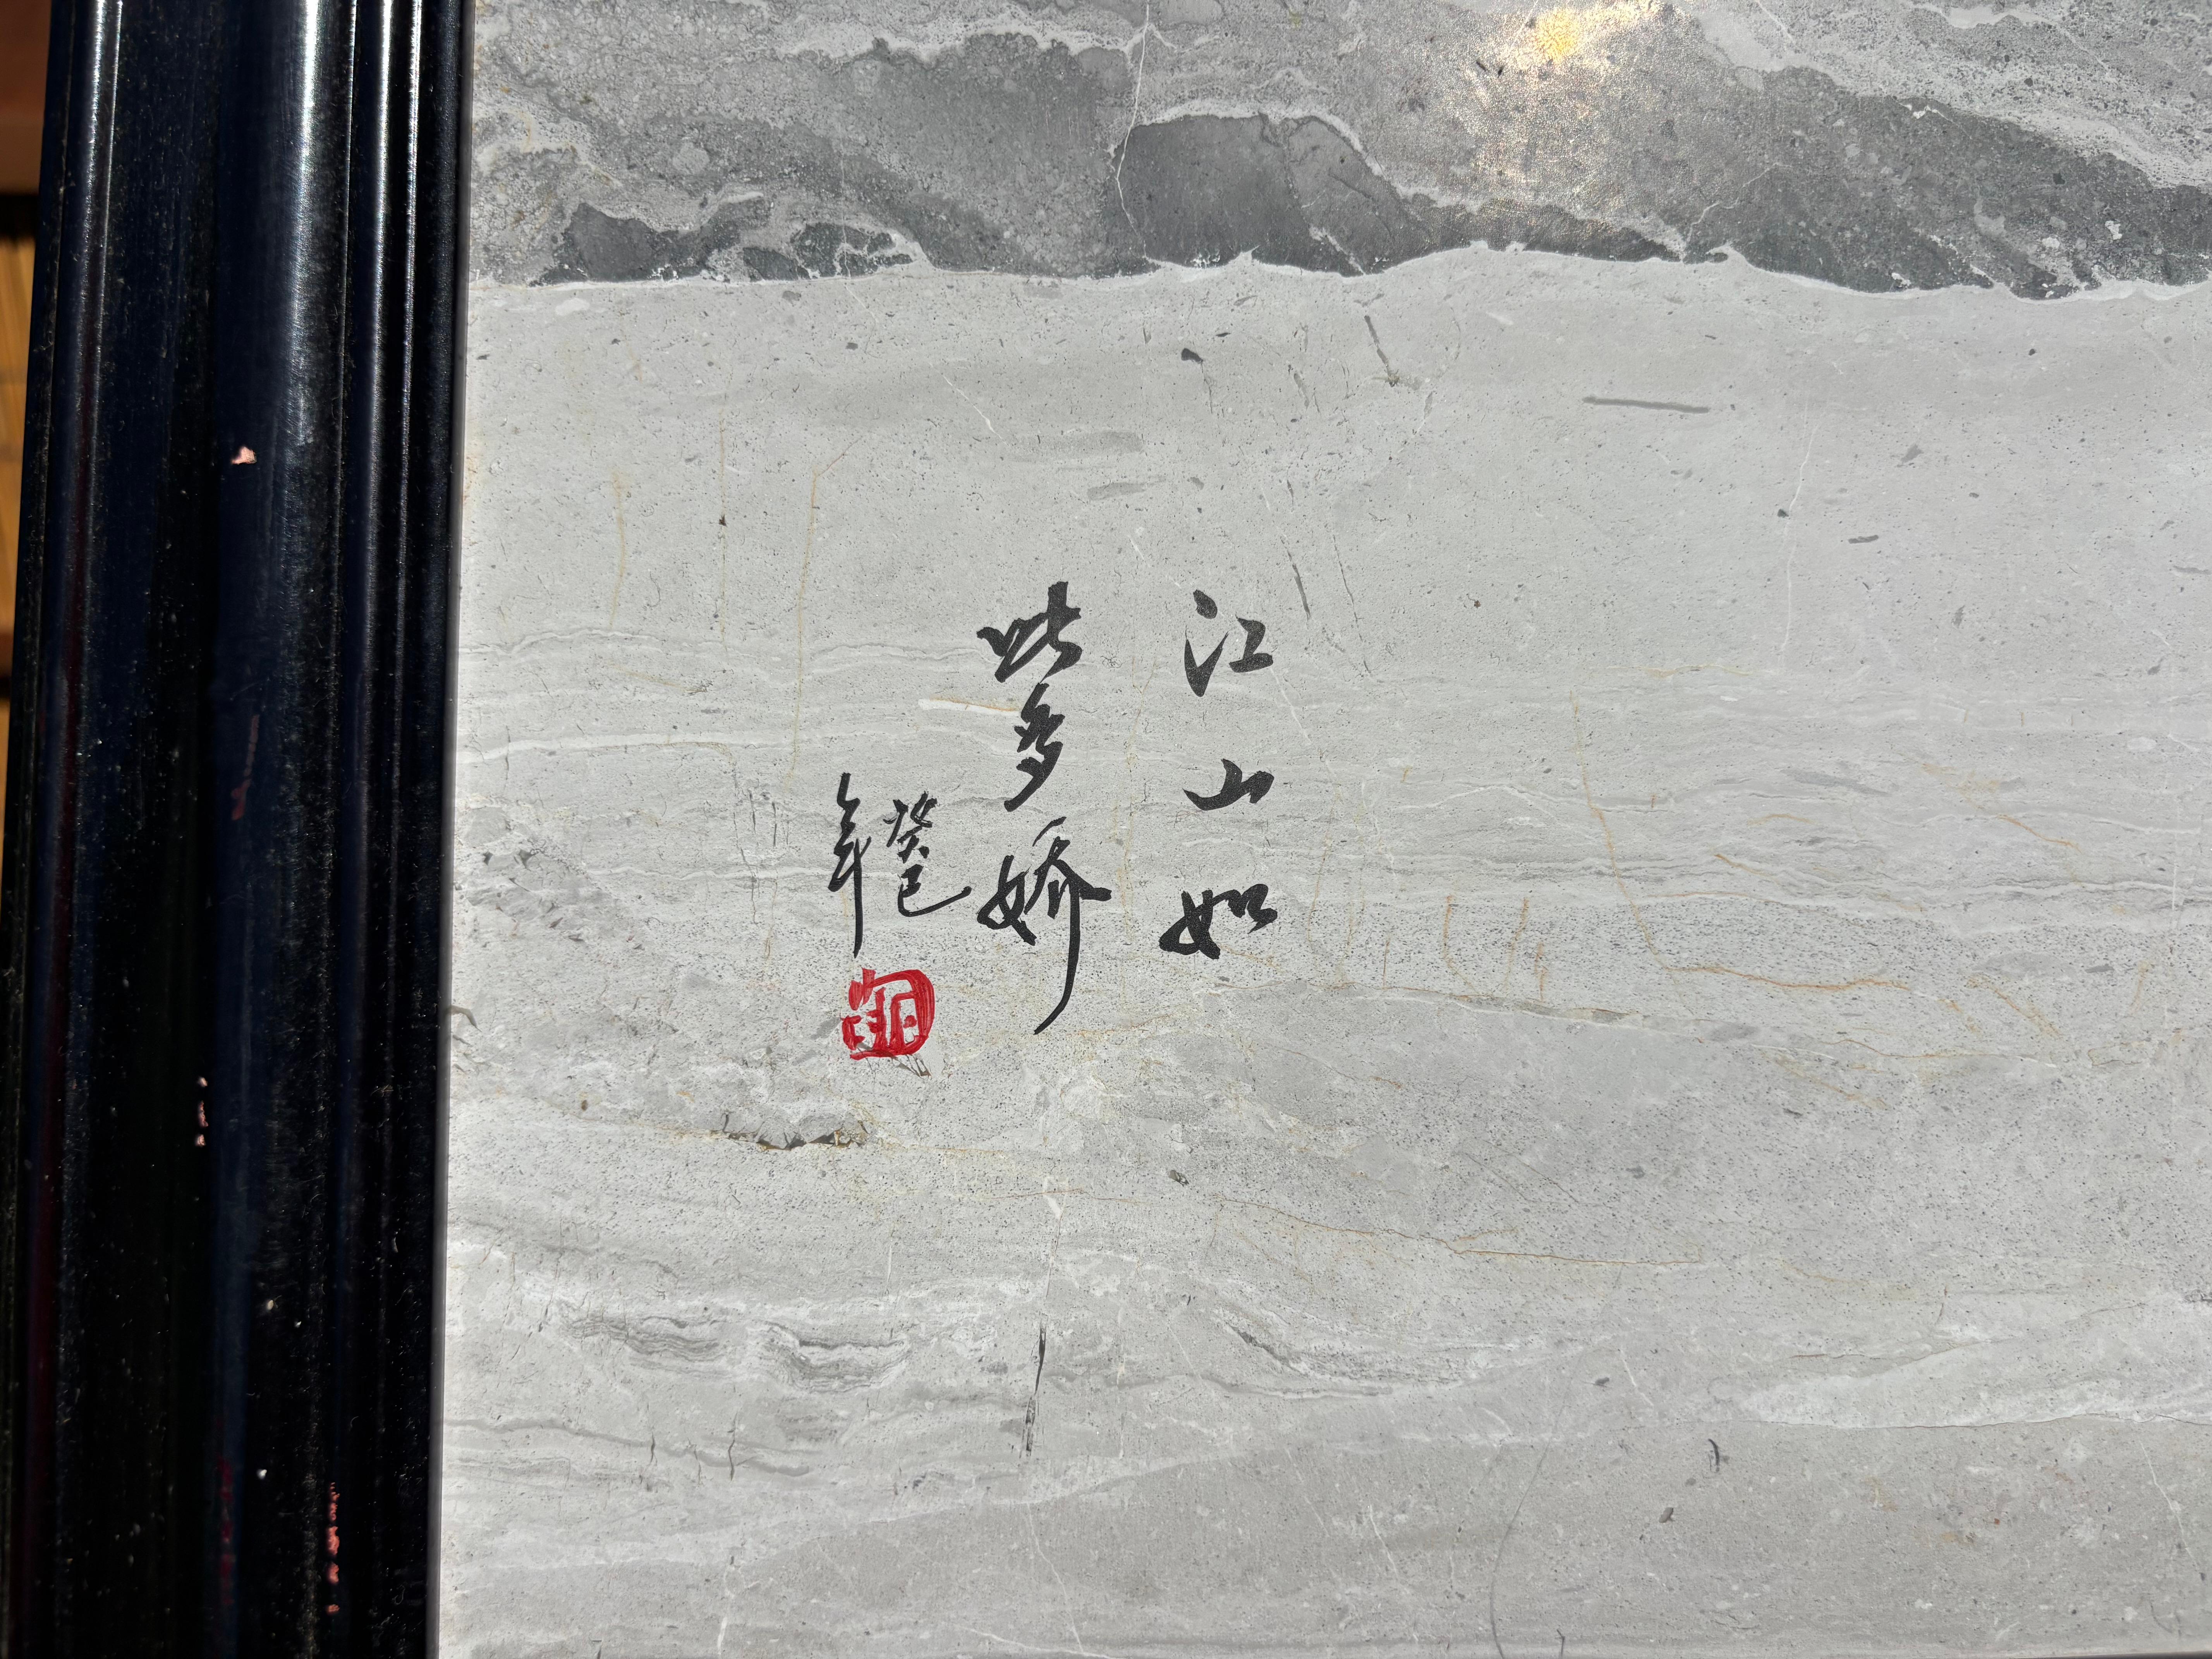 江山如
此多娇
癸巳
年